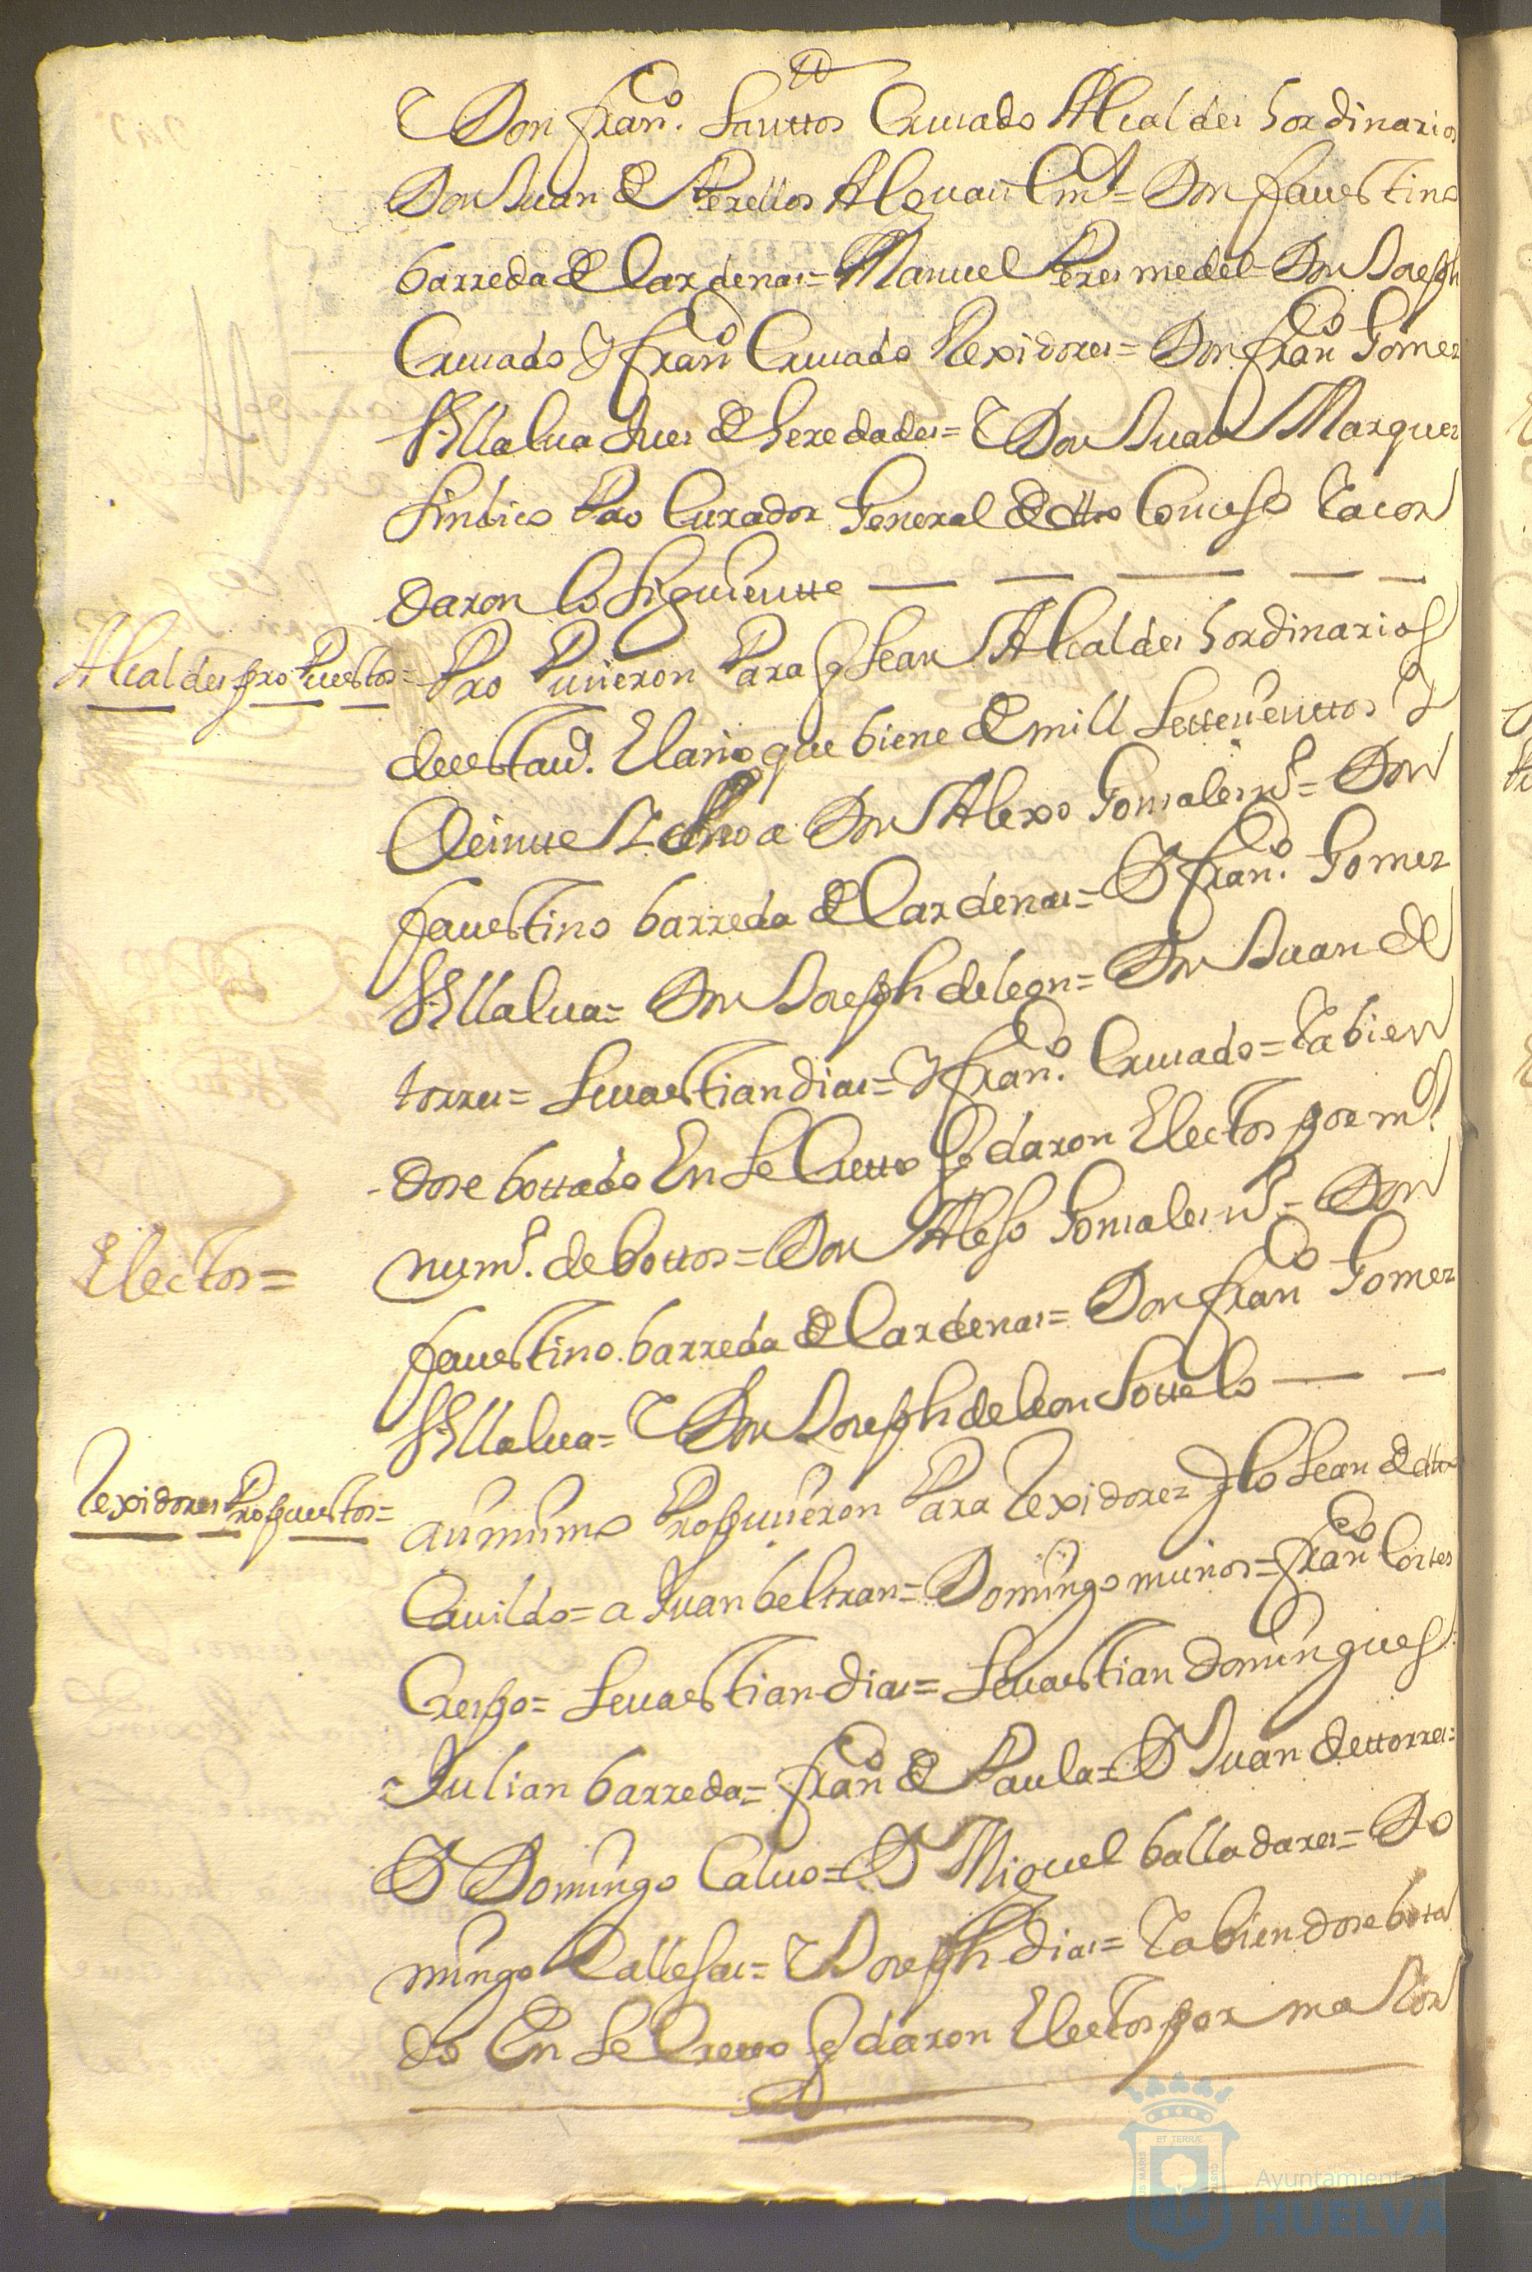 Y Don Fran.co Santtos Cruzado Alcaldes hordinarios
Don Juan de Perellos Alguacil m.r = Don faustino
barreda de Cardenas = Manuel Peres medel = Don Joseph
Cruzado Y fran.co Cruzado Rexidores = Don fran.co Gomez
Villalua Jues de heredades = Y Don Juan Marquez
Sindico Procurador General de dtto Consejo Yacor
daron lo Siguiente
Alcaldes propuestos =
Propusieron Para q Sean Alcaldes hordinarios
de esta Vi.a El año que biene de mill Settesienttos Y
Veintte Y a Don Alexo Gonsales m.s = Don
faustino barreda de Cardenas = D fran.co Gomez
Villalua = Don Joseph de leon = Don Juan de
torres = Seuastian dias = Y fran.co Cruzado = Yabien
dose bottado En Secretto q daron Electos por m.r
Electos =
num.o de bottos = Don Alejo Gonsales m.s = Don
faustino barreda de Cardenas = Don fran.co Gomez
Villalua = Y Don Joseph de leon Sottelo
Rexidores Propuestos =
asimismo Propusieron Para Rexidorez q lo Sean de dtto
Cauildo = a Juan beltran = Domingo munos = fran.co Cortes
Crespo = Seuastian dias = Seuastian domingues =
Julian barreda = fran.co de Paula = D Juan de ttorres =
D Domingo Caluo = D Miguel balladares = Do
mingo Callejas = Y Joseph dias = Yabiendose bota
do En Secretto q daron Electos por maior
Ayuntamiento de
HUELVA